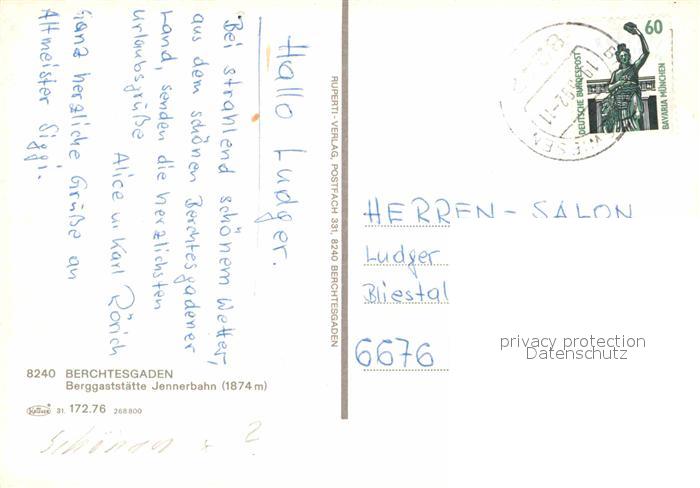 Hallo Ludger.
Bei strahlend schönem Wetter,
aus dem schönen Berchtesgadener
Land, senden die herzlichsten
Urlaubsgrüße
Alice u. Karl Rörich
Ganz herzliche Grüße an
Altmeister Siggi.
8240 BERCHTESGADEN
Berggaststätte Jennerbahn (1874 m)
31. 172.76 268800
RUPERTI-VERLAG, POSTFACH 331, 8240 BERCHTESGADEN
60
DEUTSCHE BUNDESPOST
BAVARIA MÜNCHEN
HERREN-SALON
Ludger
Bliestal
6676
privacy protection
Datenschutz